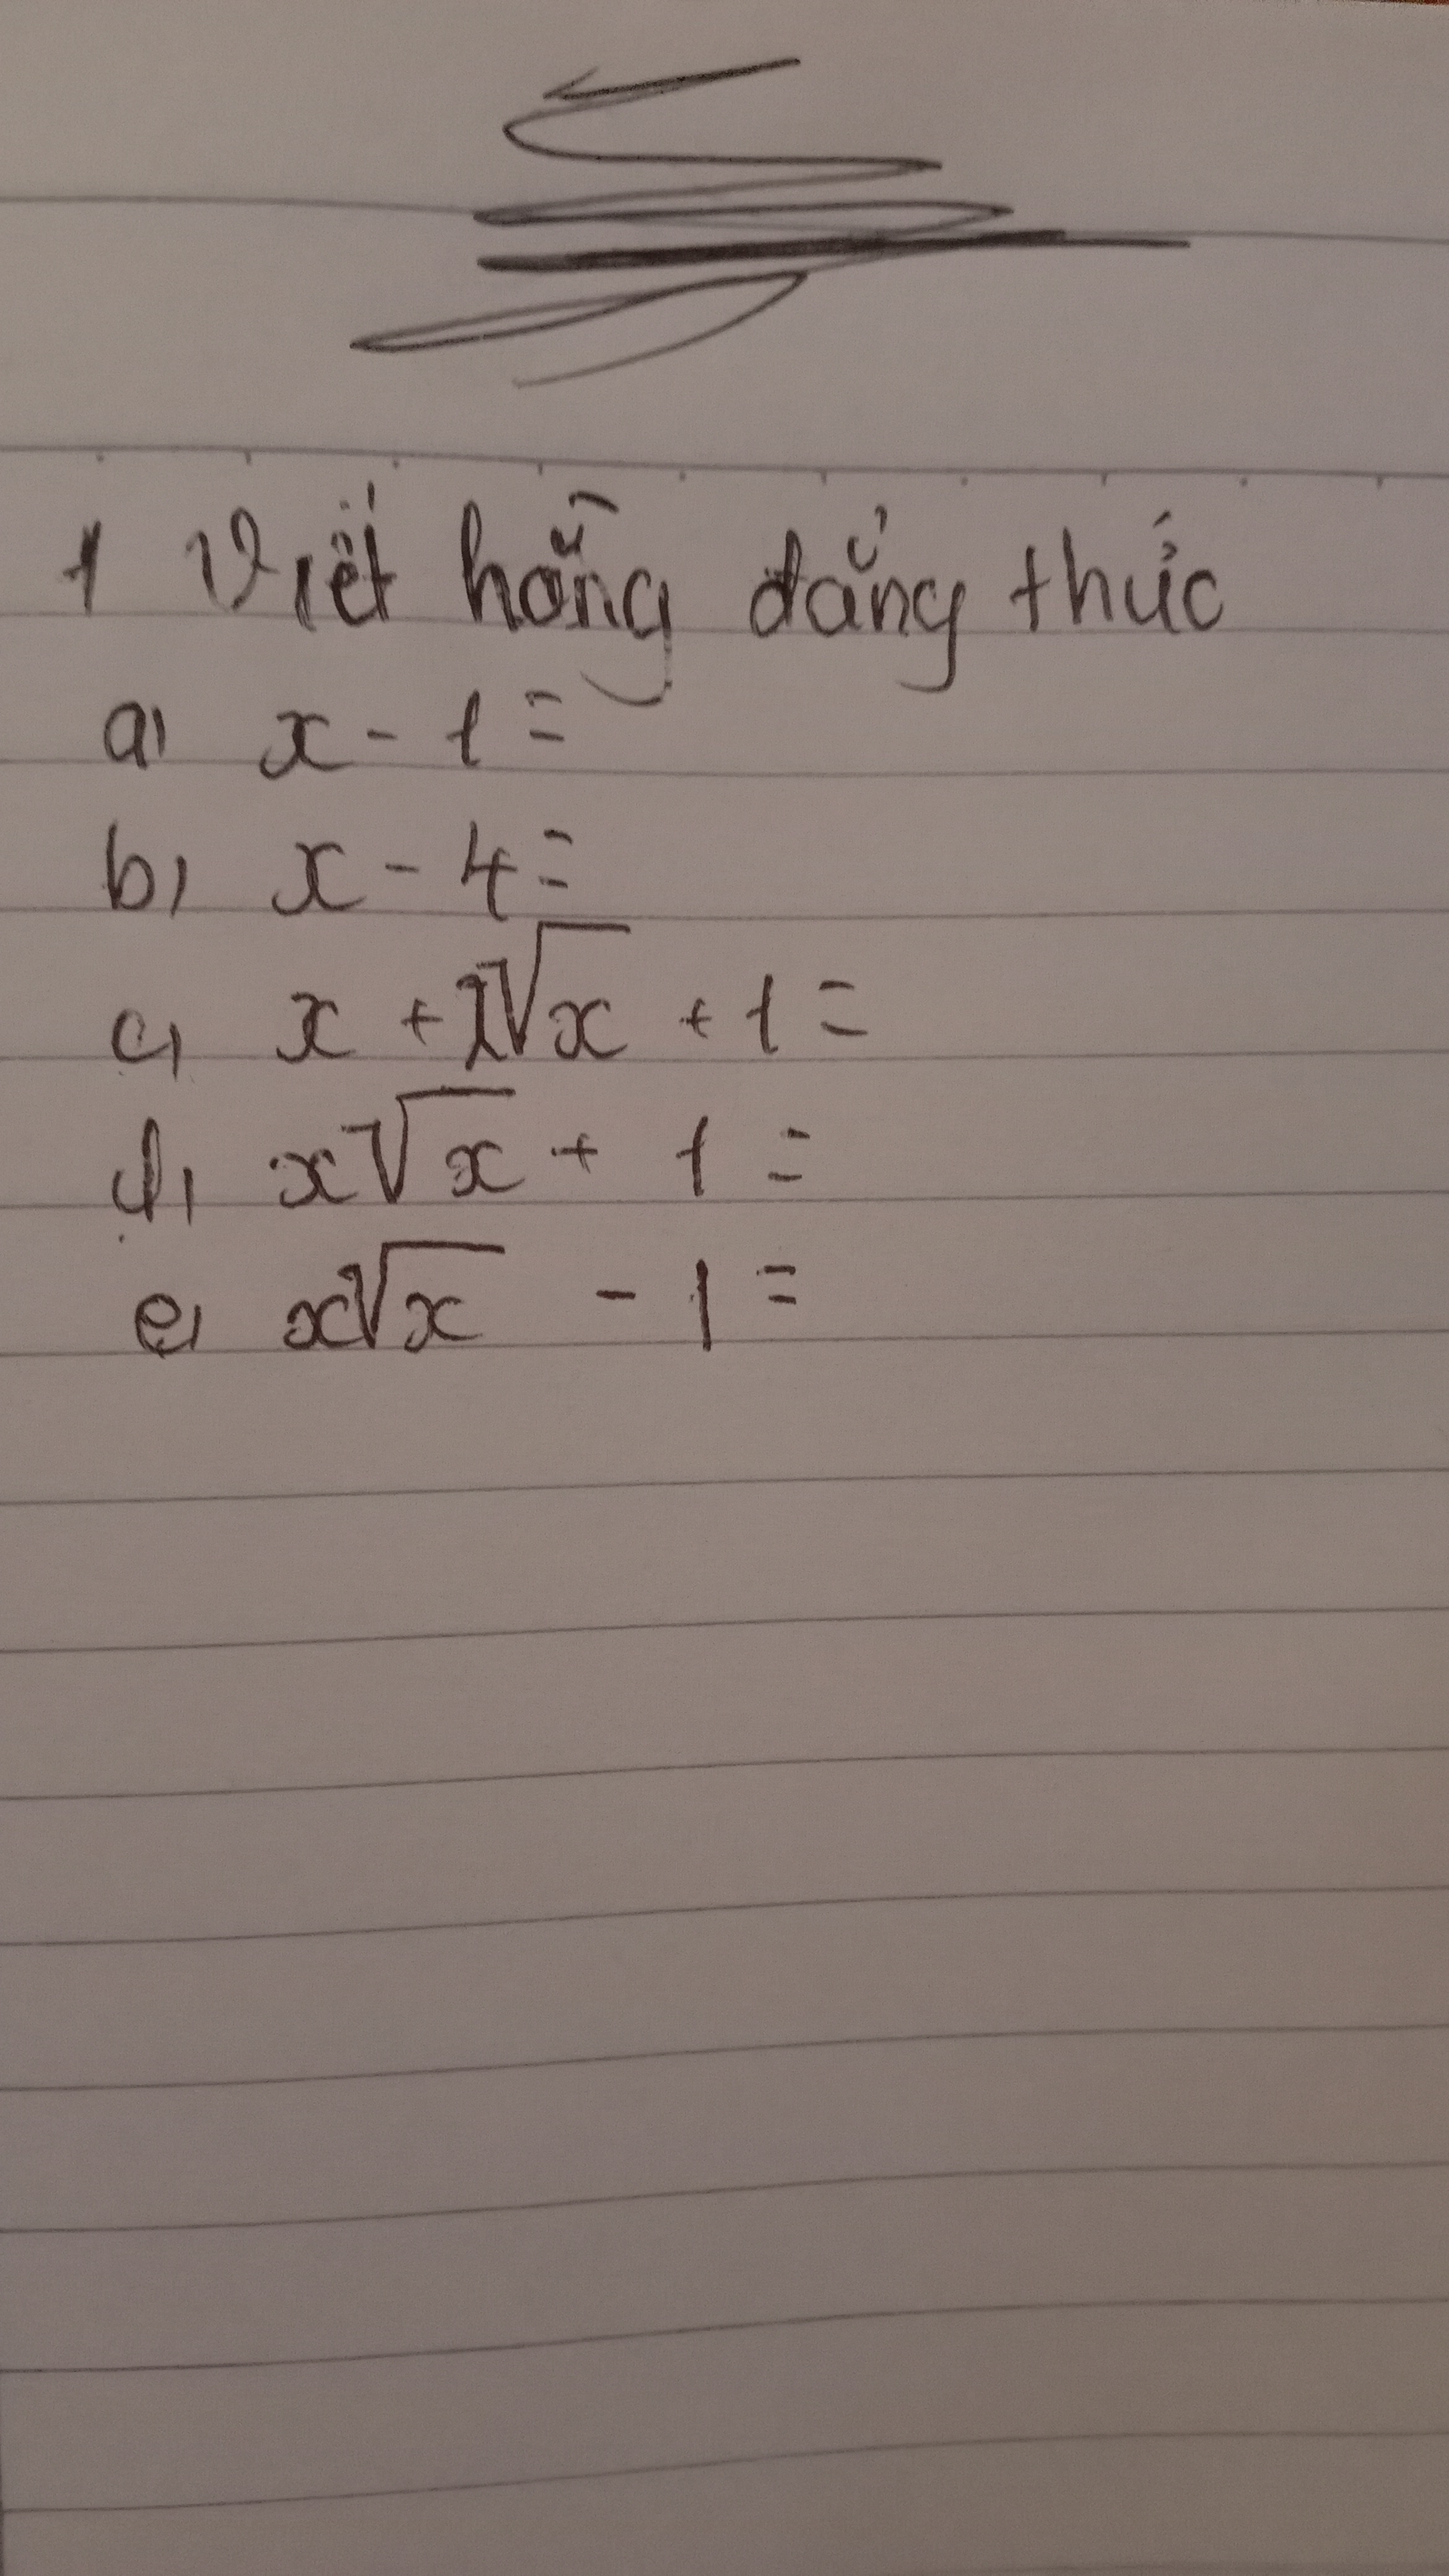 1 Viết hằng đẳng thức
a, x - 1 =
b, x - 4 =
c, x + 2√x + 1 =
d, x√x + 1 =
e, x√x - 1 =